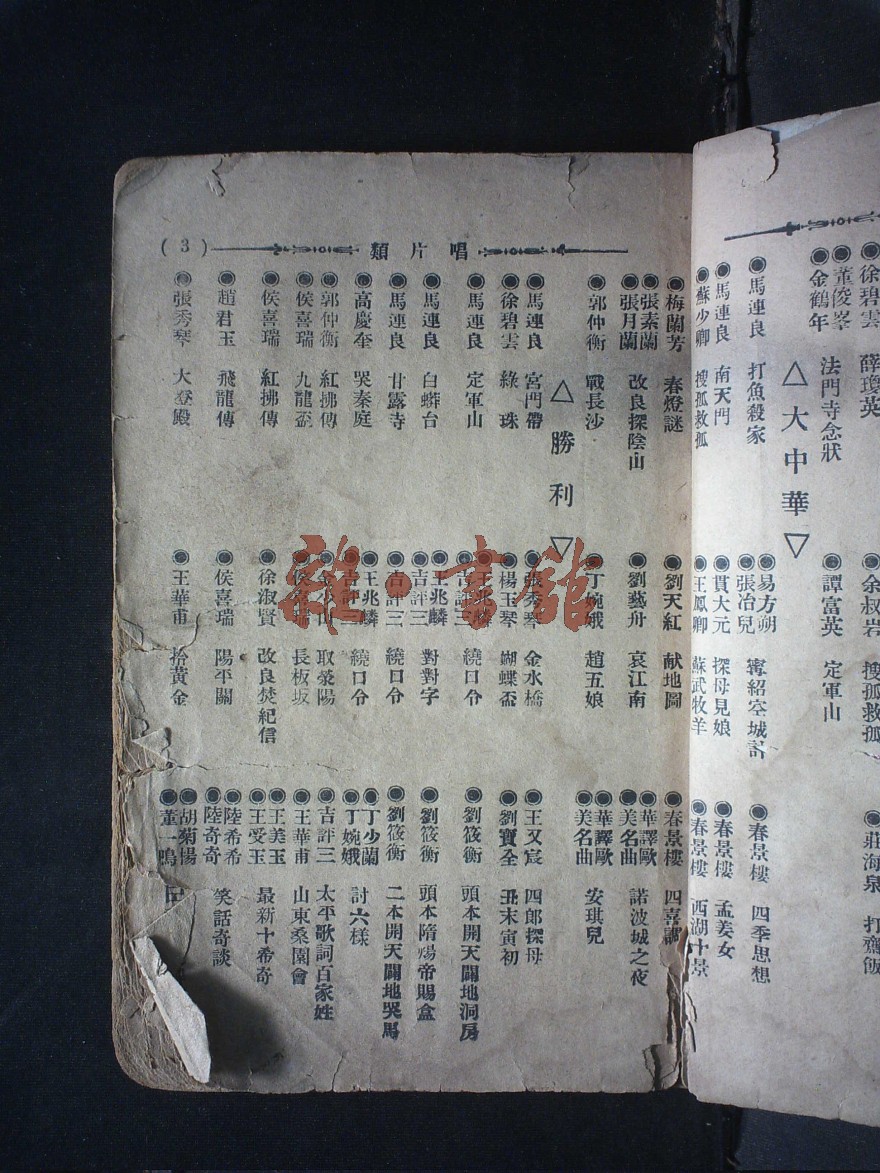 徐碧雲 薛瓊英
董俊峯
金鶴年 法門寺念狀
△大中華▽
馬連良 打魚殺家
馬連良 南天門
蘇少卿 搜孤救孤
余叔岩 搜孤救孤
譚富英 定軍山
易方朔
張冶兒 寗紹空城計
貫大元 探母見娘
王鳳卿 蘇武牧羊
莊海泉 打齋飯
春景樓 四季思想
春景樓 孟姜女
春景樓 西湖十景
唱片類
(3)
梅蘭芳 春燈謎
張素蘭
張月蘭 改良探陰山
郭仲衡 戰長沙
△勝利▽
馬連良 宮門帶
徐碧雲 綠珠
馬連良 定軍山
馬連良 白蟒台
馬連良 甘露寺
高慶奎 哭秦庭
郭仲衡 紅拂傳
侯喜瑞 九龍盃
侯喜瑞 紅拂傳
趙君玉 飛龍傳
張秀琴 大登殿
劉天紅 献地圖
劉藝舟 哀江南
丁婉娥 趙五娘
張秀琴 金水橋
楊玉琴 蝴蝶盃
王兆麟
吉評三 繞口令
王兆麟
吉評三 對對字
吉評三 繞口令
王兆麟
吉評三 繞口令
金少山 取滎陽
侯喜瑞 長板坂
徐淑賢 改良焚紀信
侯喜瑞 陽平關
王華甫 拾黃金
春景樓 四喜調
華譯歐
美名曲 諾波城之夜
華譯歐
美名曲 安琪兒
王又宸 四郎探母
劉寶全 丑末寅初
劉筱衡 頭本開天闢地洞房
劉筱衡 頭本隋煬帝賜盒
劉筱衡 二本開天闢地哭馬
丁少蘭
丁婉娥 討六樣
吉評三 太平歌詞百家姓
王華甫 山東桑園會
王美玉
王受玉 最新十希奇
陸希希
陸奇奇 笑話奇談
胡菊楊
董一鳴
雜·書館